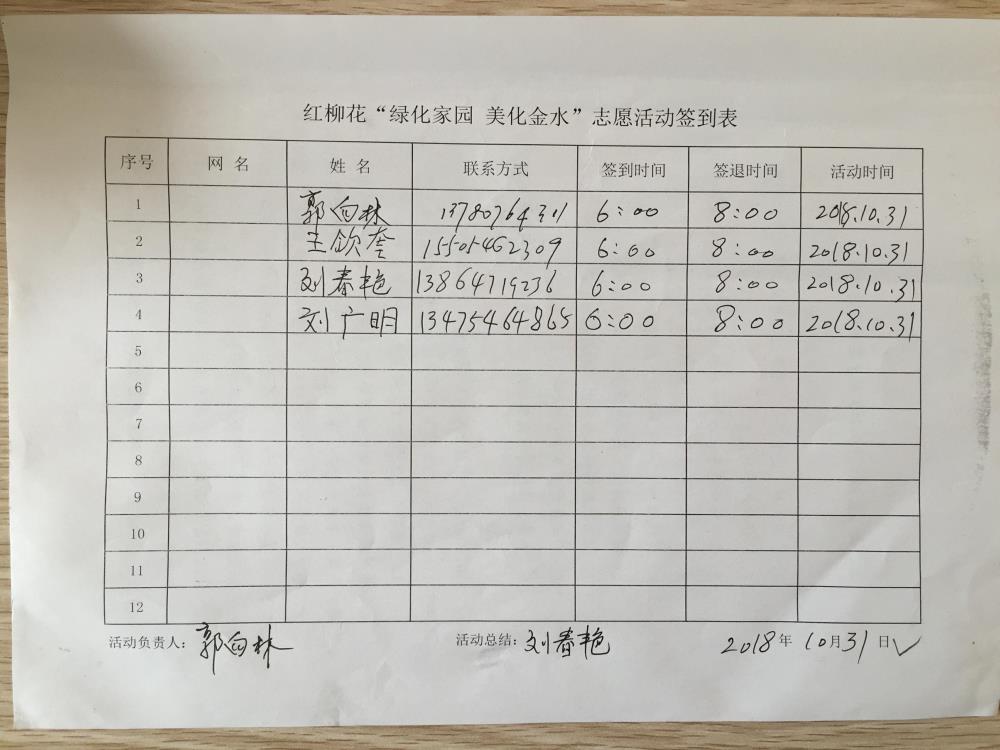 红柳花“绿化家园 美化金水”志愿活动签到表
序号 网 名 姓 名 联系方式 签到时间 签退时间 活动时间
1 郭向林 13780764311 6:00 8:00 2018.10.31
2 王欣 15505462309 6:00 8:00 2018.10.31
3 刘春艳 13864719236 6:00 8:00 2018.10.31
4 刘广明 13475464865 6:00 8:00 2018.10.31
5
6
7
8
9
10
11
12
活动负责人:郭向林 活动总结:刘春艳 2018年10月31日